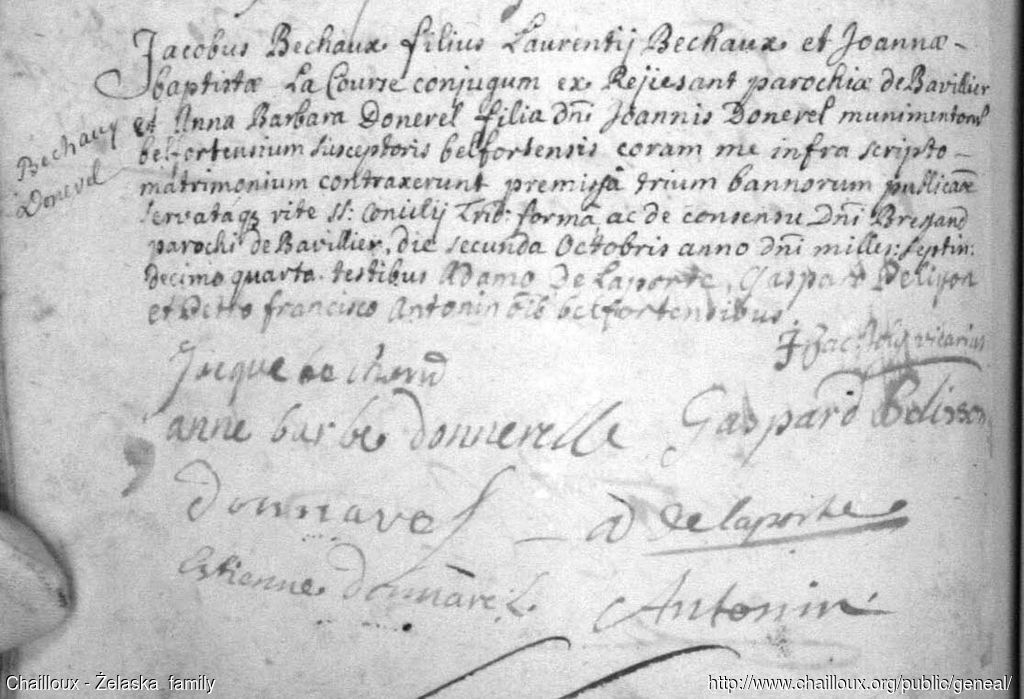 Jacobus Bechaux filius Laurentij Bechaux et Joannæ-
baptistæ La Course conjugum ex Rejiesant parochiæ de Bavillier
et Anna Barbara Donerel filia dni Joannis Donerel
belfortensium susceptoris belfortensis coram me infra scripto-
matrimonium contraxerunt premissâ trium bannorum publicaõe
servatâqz rite SS: Concilij Trid: formâ, ac de consensu Dni Bregand
parochi de Bavillier, die secunda Octobris anno dni milles: septin:
decimo quarto. testibus Adamo De Laporte, Gaspard Pelison
et Petro francisco Antonin oîb belfortensibus.
Bechaux
Donerel
vicarius
Jacque be chaud
anne barbe donnerelle Gaspard Pelisson
donnavel a delaporte
Estienne donnârel Antonin
Chailloux - Żelaska family http://www.chailloux.org/public/geneal/